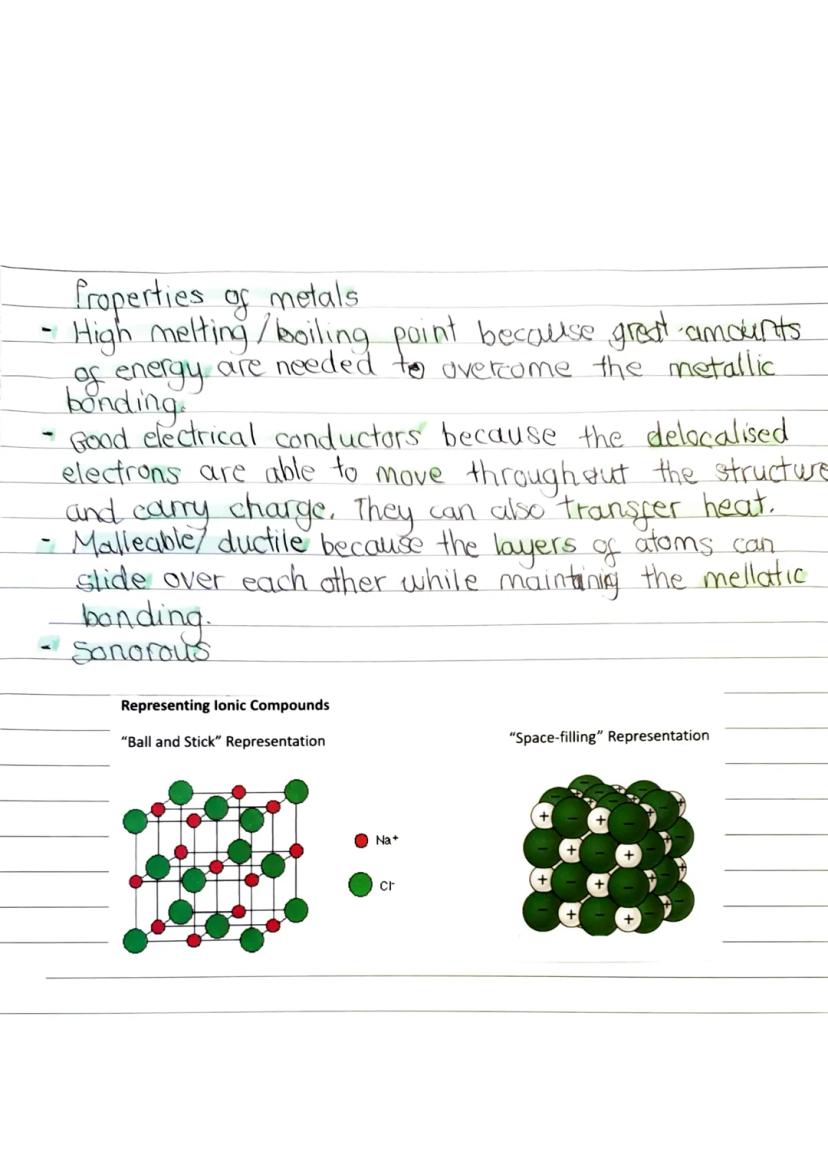 Properties of metals
- High melting/boiling point because great amounts
of energy are needed to overcome the metallic
bonding.
- Good electrical conductors because the delocalised
electrons are able to move throughout the structure
and carry charge. They can also transfer heat.
- Malleable/ductile because the layers of atoms can
slide over each other while maintaning the mellatic
bonding.
- Sonorous
Representing Ionic Compounds
"Ball and Stick" Representation
"Space-filling" Representation
Na+
Cl-